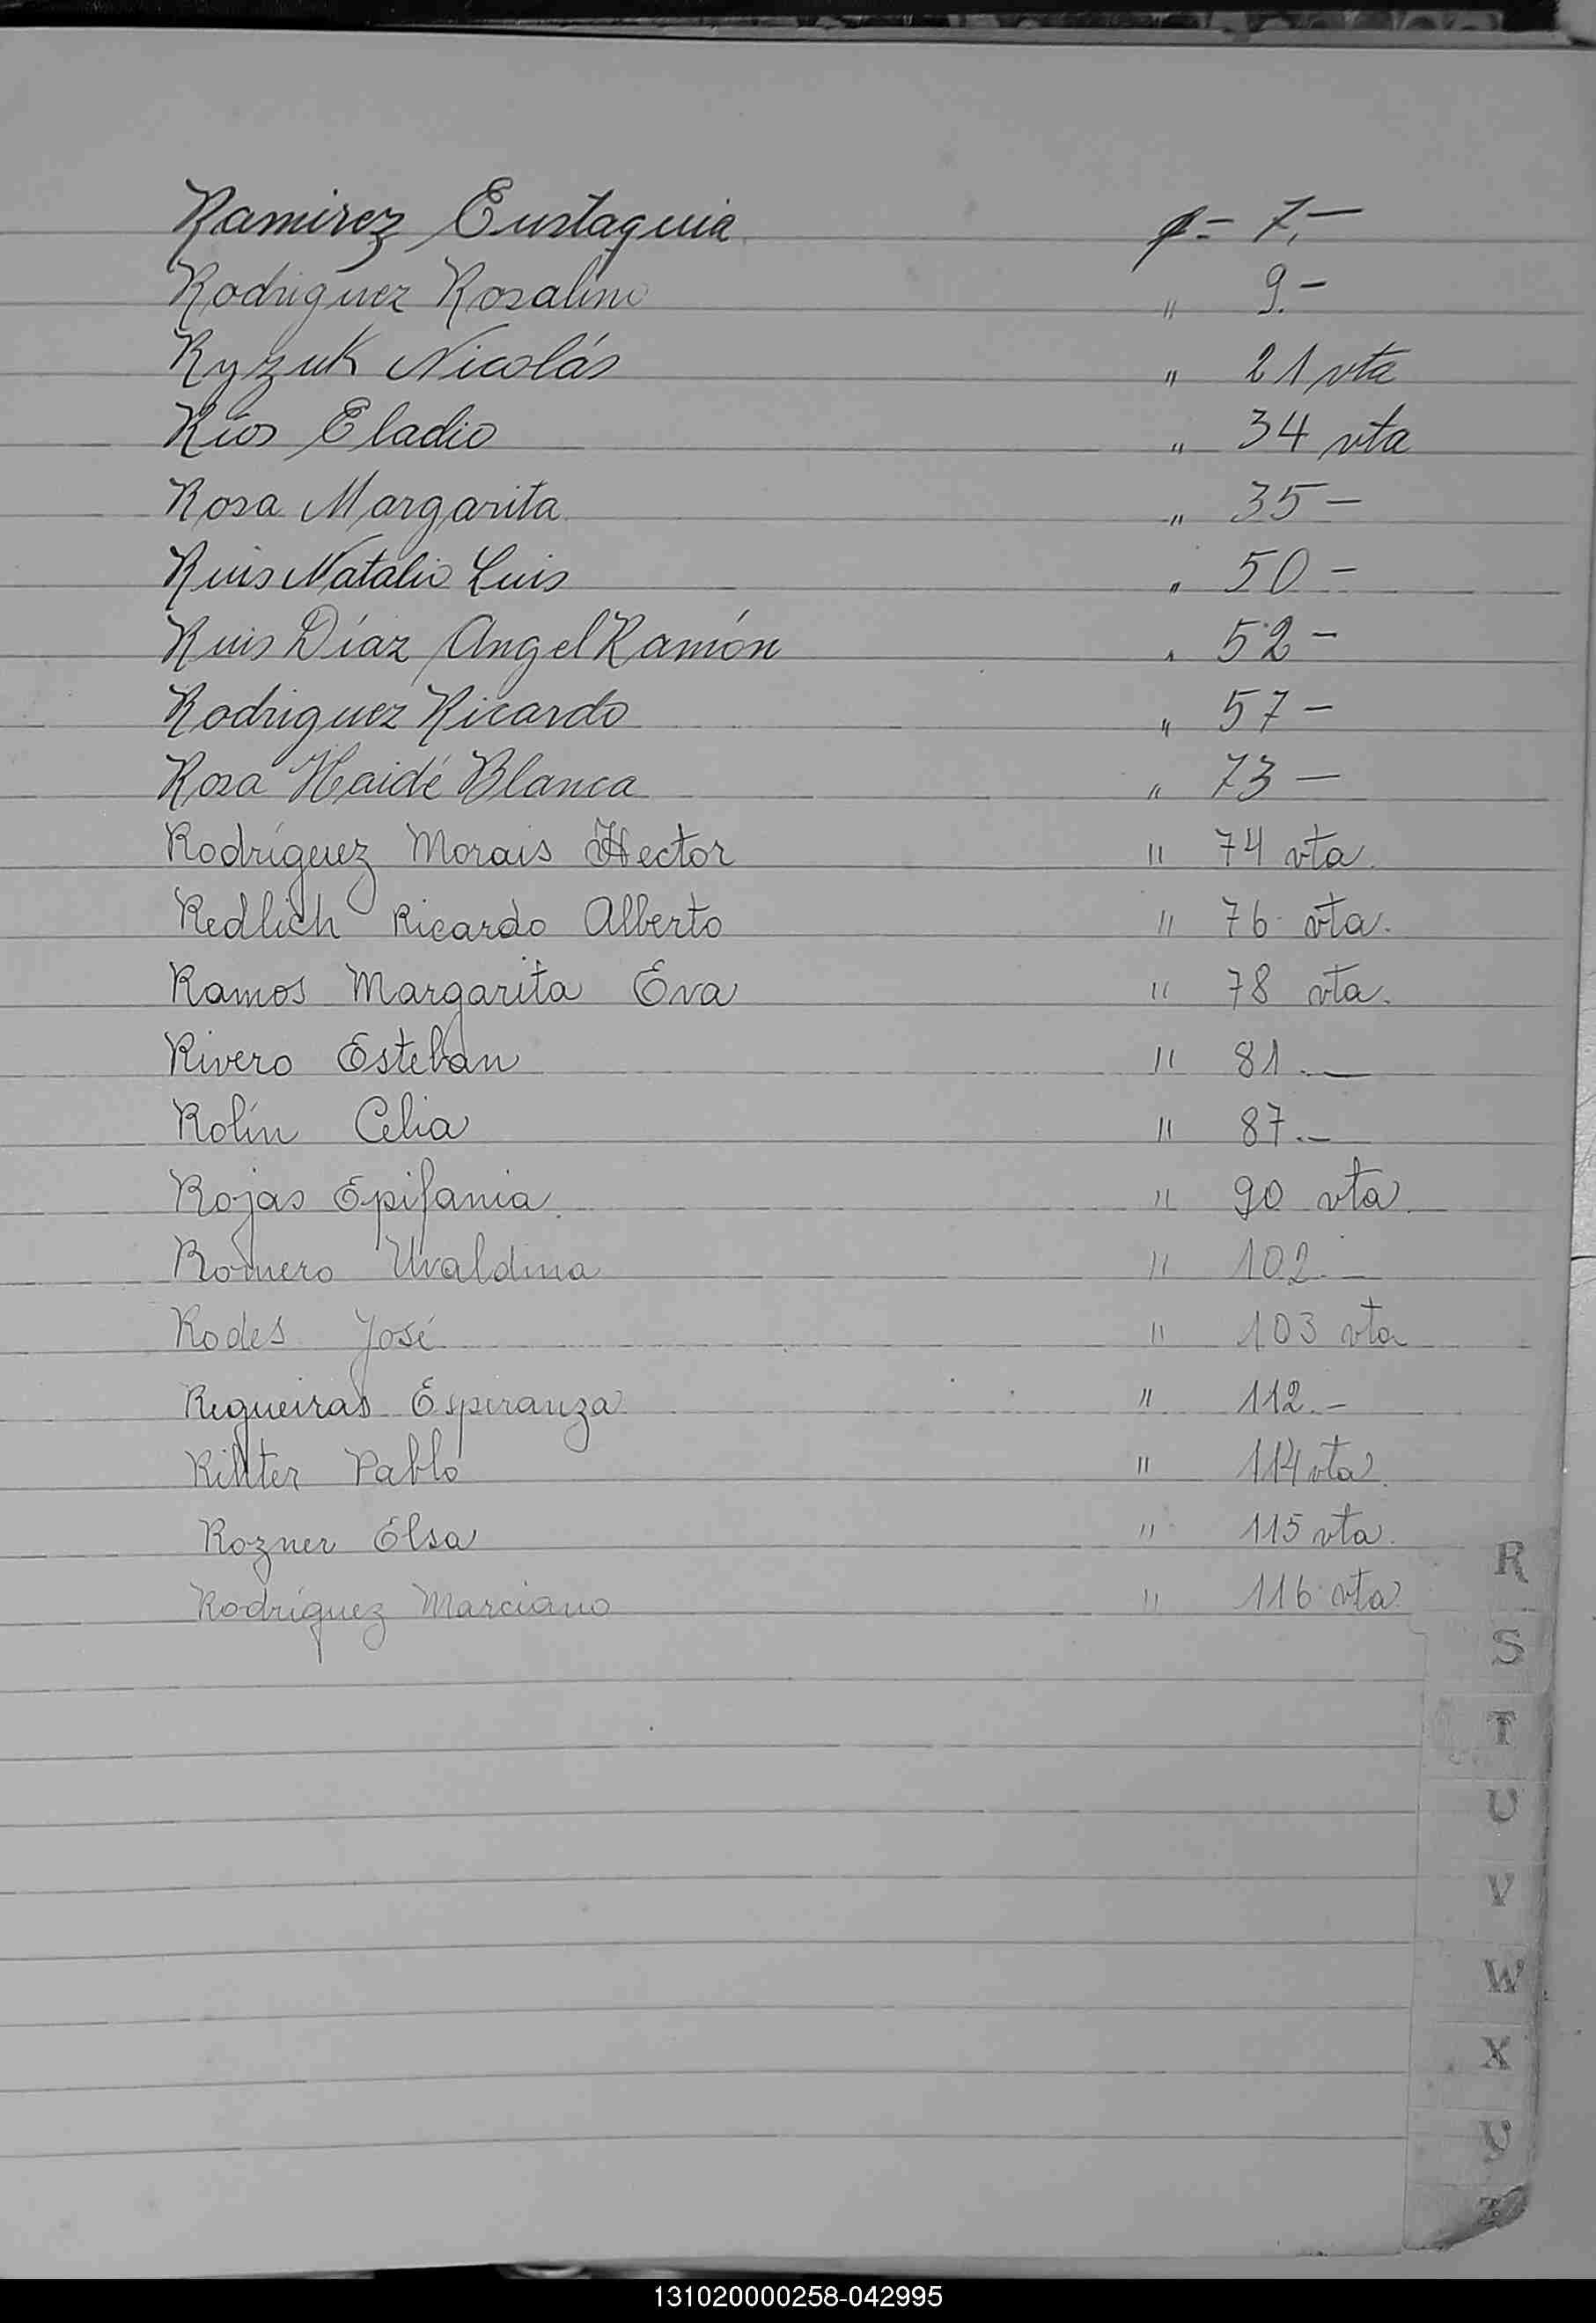 Ramirez Eustaquia p= 7.-
Rodriguez Rosalino " 9.-
Ryzuk Nicolás " 21 vta
Ríos Eladio " 34 vta
Rosa Margarita " 35 -
Ruis Natalio Luis " 50 -
Ruis Díaz Angel Ramón " 52 -
Rodriguez Ricardo " 57 -
Rosa Haidé Blanca " 73 -
Rodríguez Morais Hector " 74 vta.
Redlich Ricardo Alberto " 76 vta.
Ramos Margarita Eva " 78 vta.
Rivero Esteban " 81.-
Rolín Celia " 87.-
Rojas Epifania " 90 vta.
Romero Uvaldina " 102.-
Rodes José " 103 vta
Regueiras Esperanza " 112.-
Pablo " 114 vta.
Rozner Elsa " 115 vta.
Rodríguez Marciano " 116 vta.
R
S
T
U
V
W
X
Y
Z
131020000258-042995